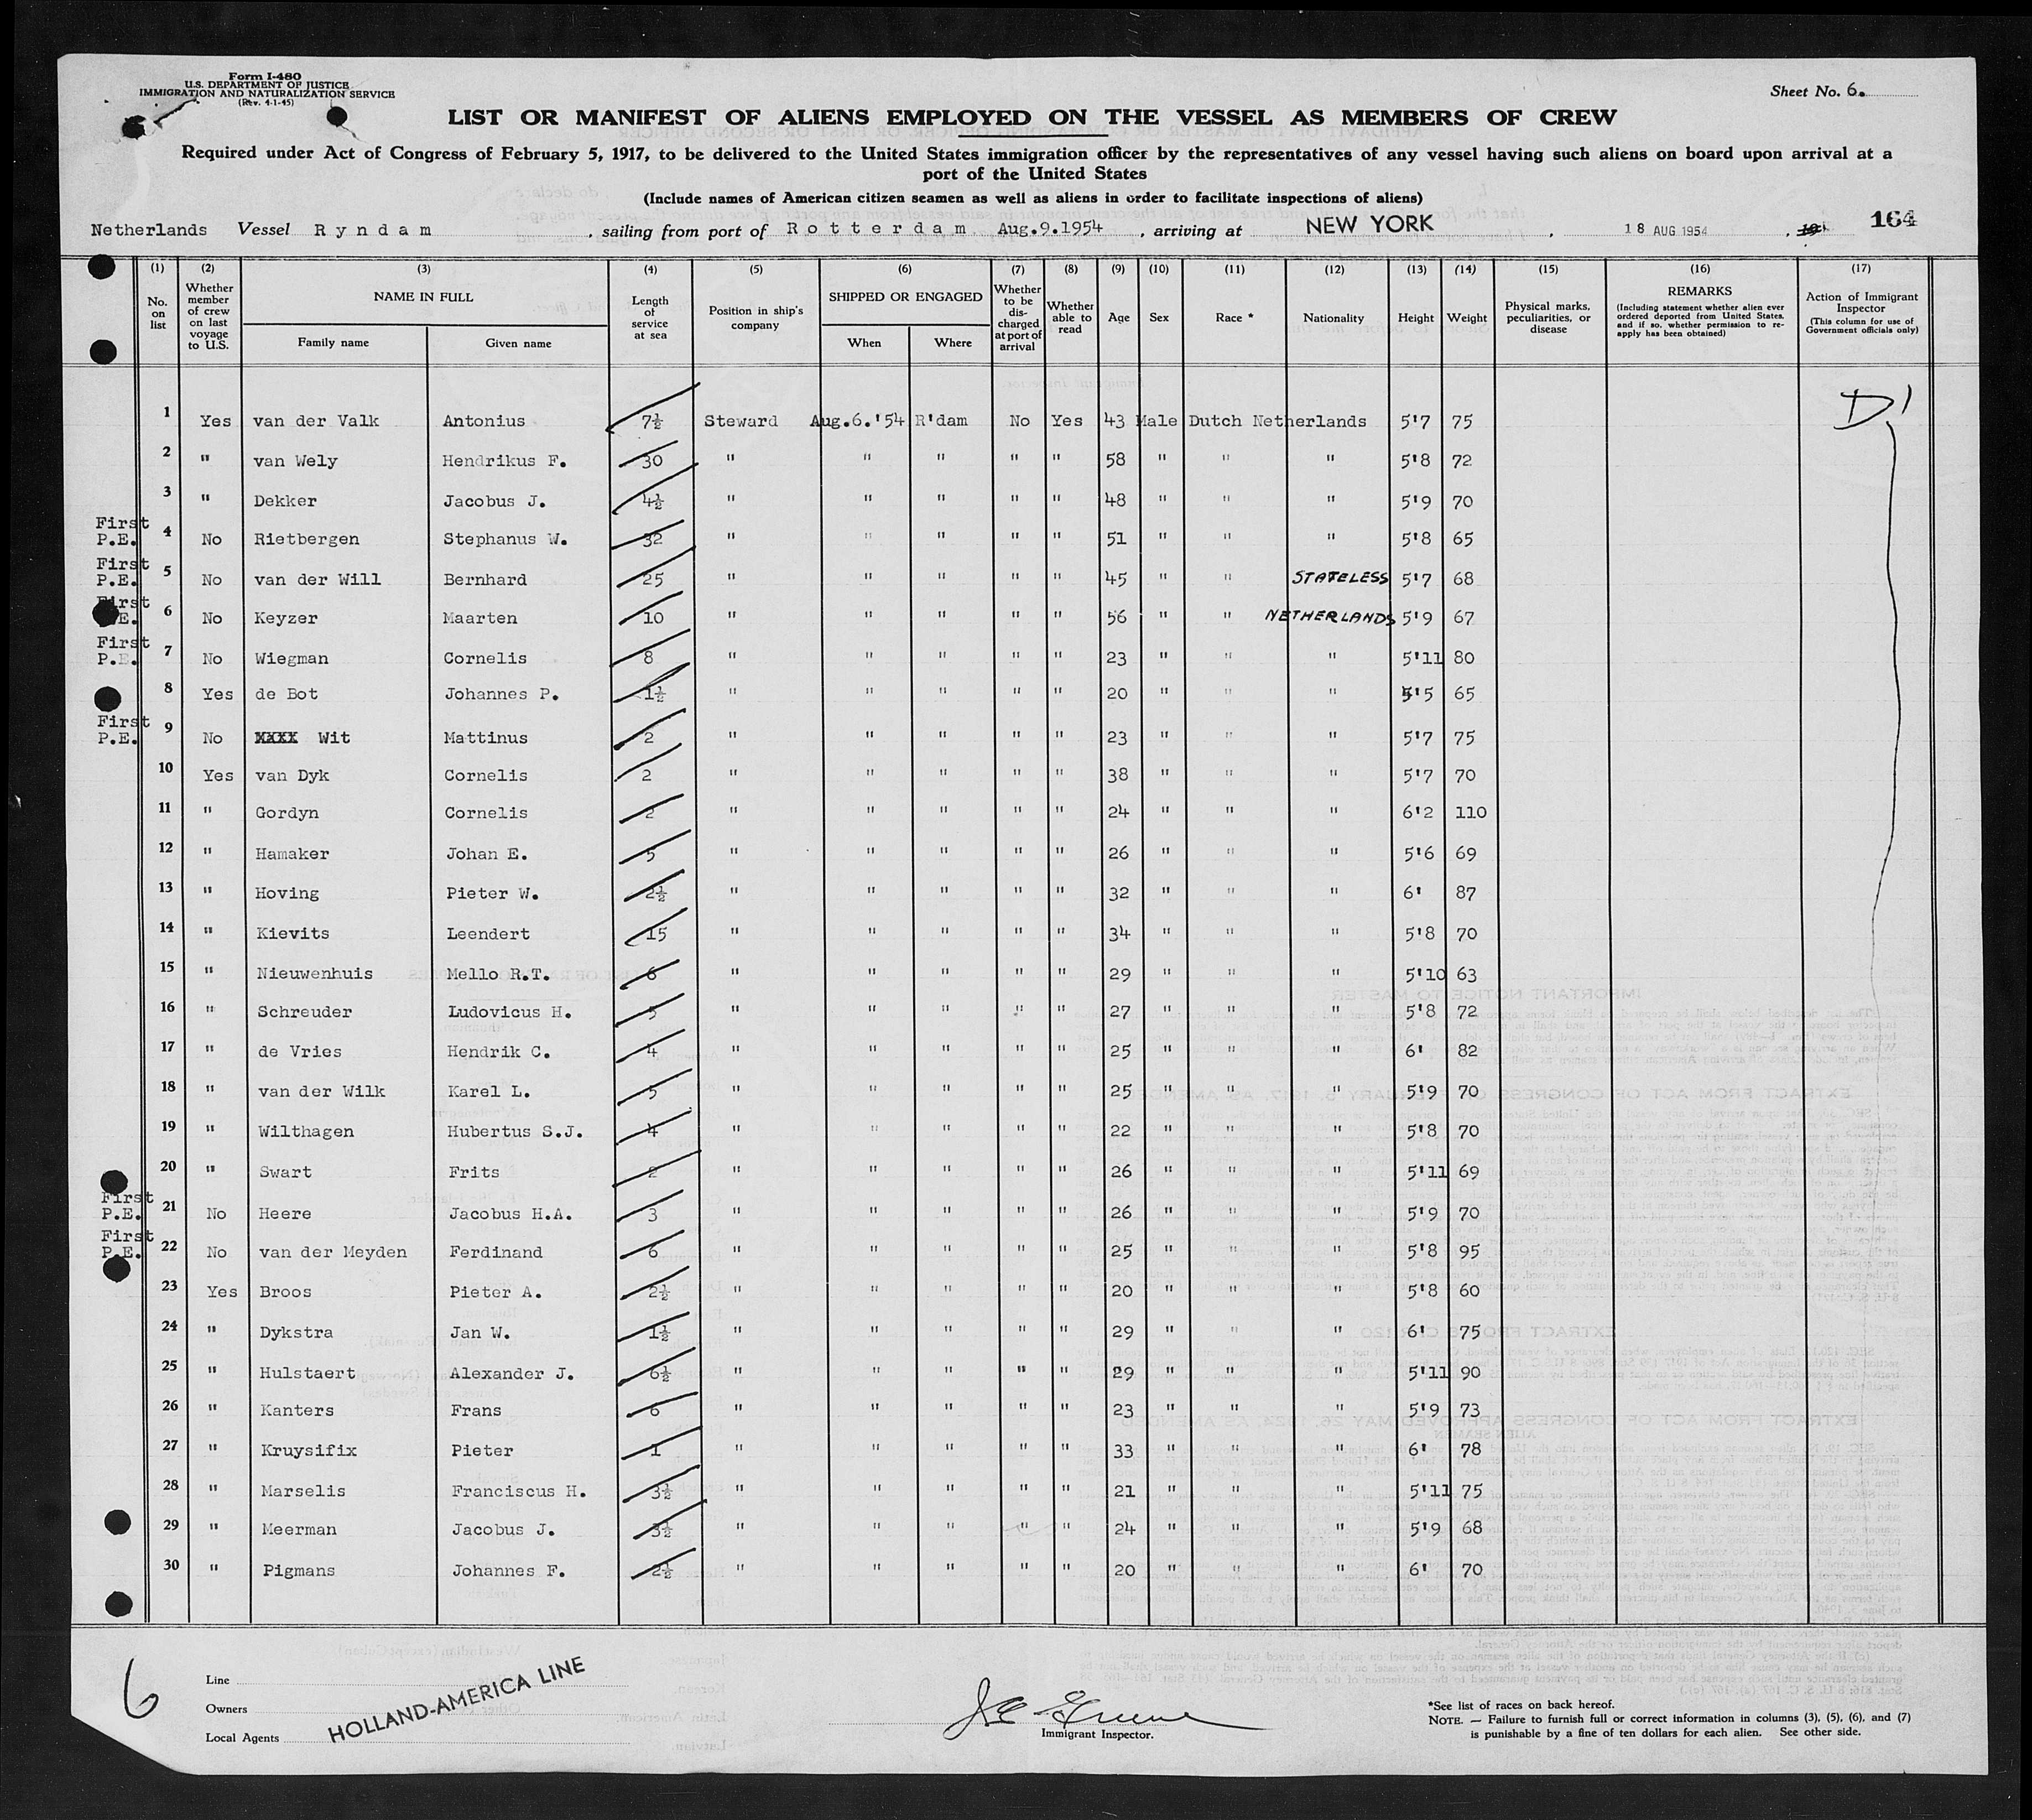 Form I-480
U.S. DEPARTMENT OF JUSTICE
IMMIGRATION AND NATURALIZATION SERVICE
(Rev. 4-1-45)
Sheet No. 6.
LIST OR MANIFEST OF ALIENS EMPLOYED ON THE VESSEL AS MEMBERS OF CREW
Required under Act of Congress of February 5, 1917, to be delivered to the United States immigration officer by the representatives of any vessel having such aliens on board upon arrival at a
port of the United States
(Include names of American citizen seamen as well as aliens in order to facilitate inspections of aliens)
Netherlands Vessel Ryndam, sailing from port of Rotterdam Aug.9.1954, arriving at NEW YORK, 18 AUG 1954, 164
(1) (2) (3) (4) (5) (6) (7) (8) (9) (10) (11) (12) (13) (14) (15) (16) (17)
No. on list | Whether member of crew on last voyage to U.S. | NAME IN FULL | Family name | Given name | Length of service at sea | Position in ship's company | SHIPPED OR ENGAGED | When | Where | Whether to be discharged at port of arrival | Whether able to read | Age | Sex | Race * | Nationality | Height | Weight | Physical marks, peculiarities, or disease | REMARKS (Including statement whether alien ever ordered deported from United States, and if so, whether permission to reapply has been obtained) | Action of Immigrant Inspector (This column for use of Government officials only)
1 Yes van der Valk Antonius 7½ Steward Aug.6.'54 R'dam No Yes 43 Male Dutch Netherlands 5'7 75 D1
2 " van Wely Hendrikus F. 30 " " " " " 58 " " " 5'8 72
3 " Dekker Jacobus J. 4½ " " " " " 48 " " " 5'9 70
First P.E. 4 No Rietbergen Stephanus W. 32 " " " " " 51 " " " 5'8 65
First P.E. 5 No van der Will Bernhard 25 " " " " " 45 " " STATELESS 5'7 68
First P.E. 6 No Keyzer Maarten 10 " " " " " 56 " " NETHERLANDS 5'9 67
First P.E. 7 No Wiegman Cornelis 8 " " " " " 23 " " " 5'11 80
8 Yes de Bot Johannes P. 1½ " " " " " 20 " " " 5'5 65
First P.E. 9 No XXXX Wit Mattinus 2 " " " " " 23 " " " 5'7 75
10 Yes van Dyk Cornelis 2 " " " " " 38 " " " 5'7 70
11 " Gordyn Cornelis 2 " " " " " 24 " " " 6'2 110
12 " Hamaker Johan E. 5 " " " " " 26 " " " 5'6 69
13 " Hoving Pieter W. 2½ " " " " " 32 " " " 6' 87
14 " Kievits Leendert 15 " " " " " 34 " " " 5'8 70
15 " Nieuwenhuis Mello R.T. 6 " " " " " 29 " " " 5'10 63
16 " Schreuder Ludovicus H. 5 " " " " " 27 " " " 5'8 72
17 " de Vries Hendrik C. 4 " " " " " 25 " " " 6' 82
18 " van der Wilk Karel L. 5 " " " " " 25 " " " 5'9 70
19 " Wilthagen Hubertus S.J. 4 " " " " " 22 " " " 5'8 70
20 " Swart Frits 2 " " " " " 26 " " " 5'11 69
First P.E. 21 No Heere Jacobus H.A. 3 " " " " " 26 " " " 5'9 70
First P.E. 22 No van der Meyden Ferdinand 6 " " " " " 25 " " " 5'8 95
23 Yes Broos Pieter A. 2½ " " " " " 20 " " " 5'8 60
24 " Dykstra Jan W. 1½ " " " " " 29 " " " 6' 75
25 " Hulstaert Alexander J. 6½ " " " " " 29 " " " 5'11 90
26 " Kanters Frans 6 " " " " " 23 " " " 5'9 73
27 " Kruysifix Pieter 1 " " " " " 33 " " " 6' 78
28 " Marselis Franciscus H. 3½ " " " " " 21 " " " 5'11 75
29 " Meerman Jacobus J. 3½ " " " " " 24 " " " 5'9 68
30 " Pigmans Johannes F. 2½ " " " " " 20 " " " 6' 70
6
Line
Owners
Local Agents
HOLLAND-AMERICA LINE
Immigrant Inspector.
*See list of races on back hereof.
NOTE. — Failure to furnish full or correct information in columns (3), (5), (6), and (7)
is punishable by a fine of ten dollars for each alien. See other side.